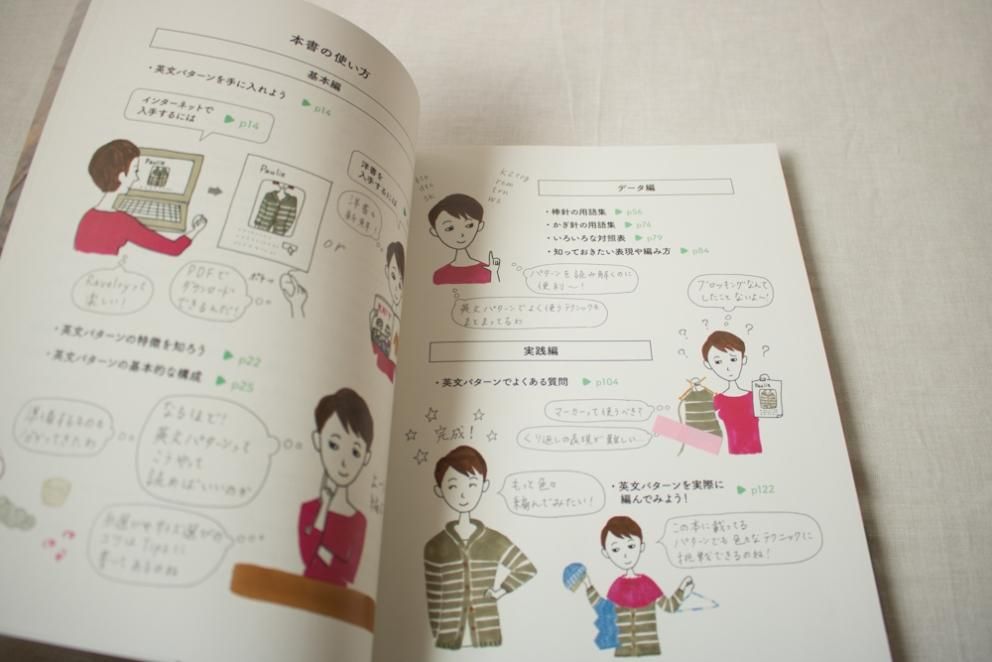 本書の使い方
基本編
・英文パターンを手に入れよう ▶ p14
インターネットで
入手するには ▶ p14
Paulie
Paulie
or
洋書を
入手するには
洋書も
新鮮！
Ravelryって
楽しい！
PDFで
ダウンロード
できるんだ！
ポチッ
・英文パターンの特徴を知ろう ▶ p22
・英文パターンの基本的な構成 ▶ p25
準備するものも
なるほど！
英文パターンって
こうやって
読めばいいのか
コツはTipsに
書いてあるのね
K2tog
rem
trn
WS
データ編
・棒針の用語集 ▶ p56
・かぎ針の用語集 ▶ p74
・いろいろな対照表 ▶ p79
・知っておきたい表現や編み方 ▶ p84
パターンを読み解くのに
便利〜！
英文パターンでよく使うテクニックも
まとまってるわ
ブロッキングなんて
したことないよ〜！
? ? ? ?
Paulie
実践編
・英文パターンでよくある質問 ▶ p104
マーカーって使うべき？
くり返しの表現が難しい…
完成！
もっと色々
編んでみたい！
・英文パターンを実際に
編んでみよう！ ▶ p122
この本に載ってる
パターンでも色々なテクニックに
挑戦できるのね！